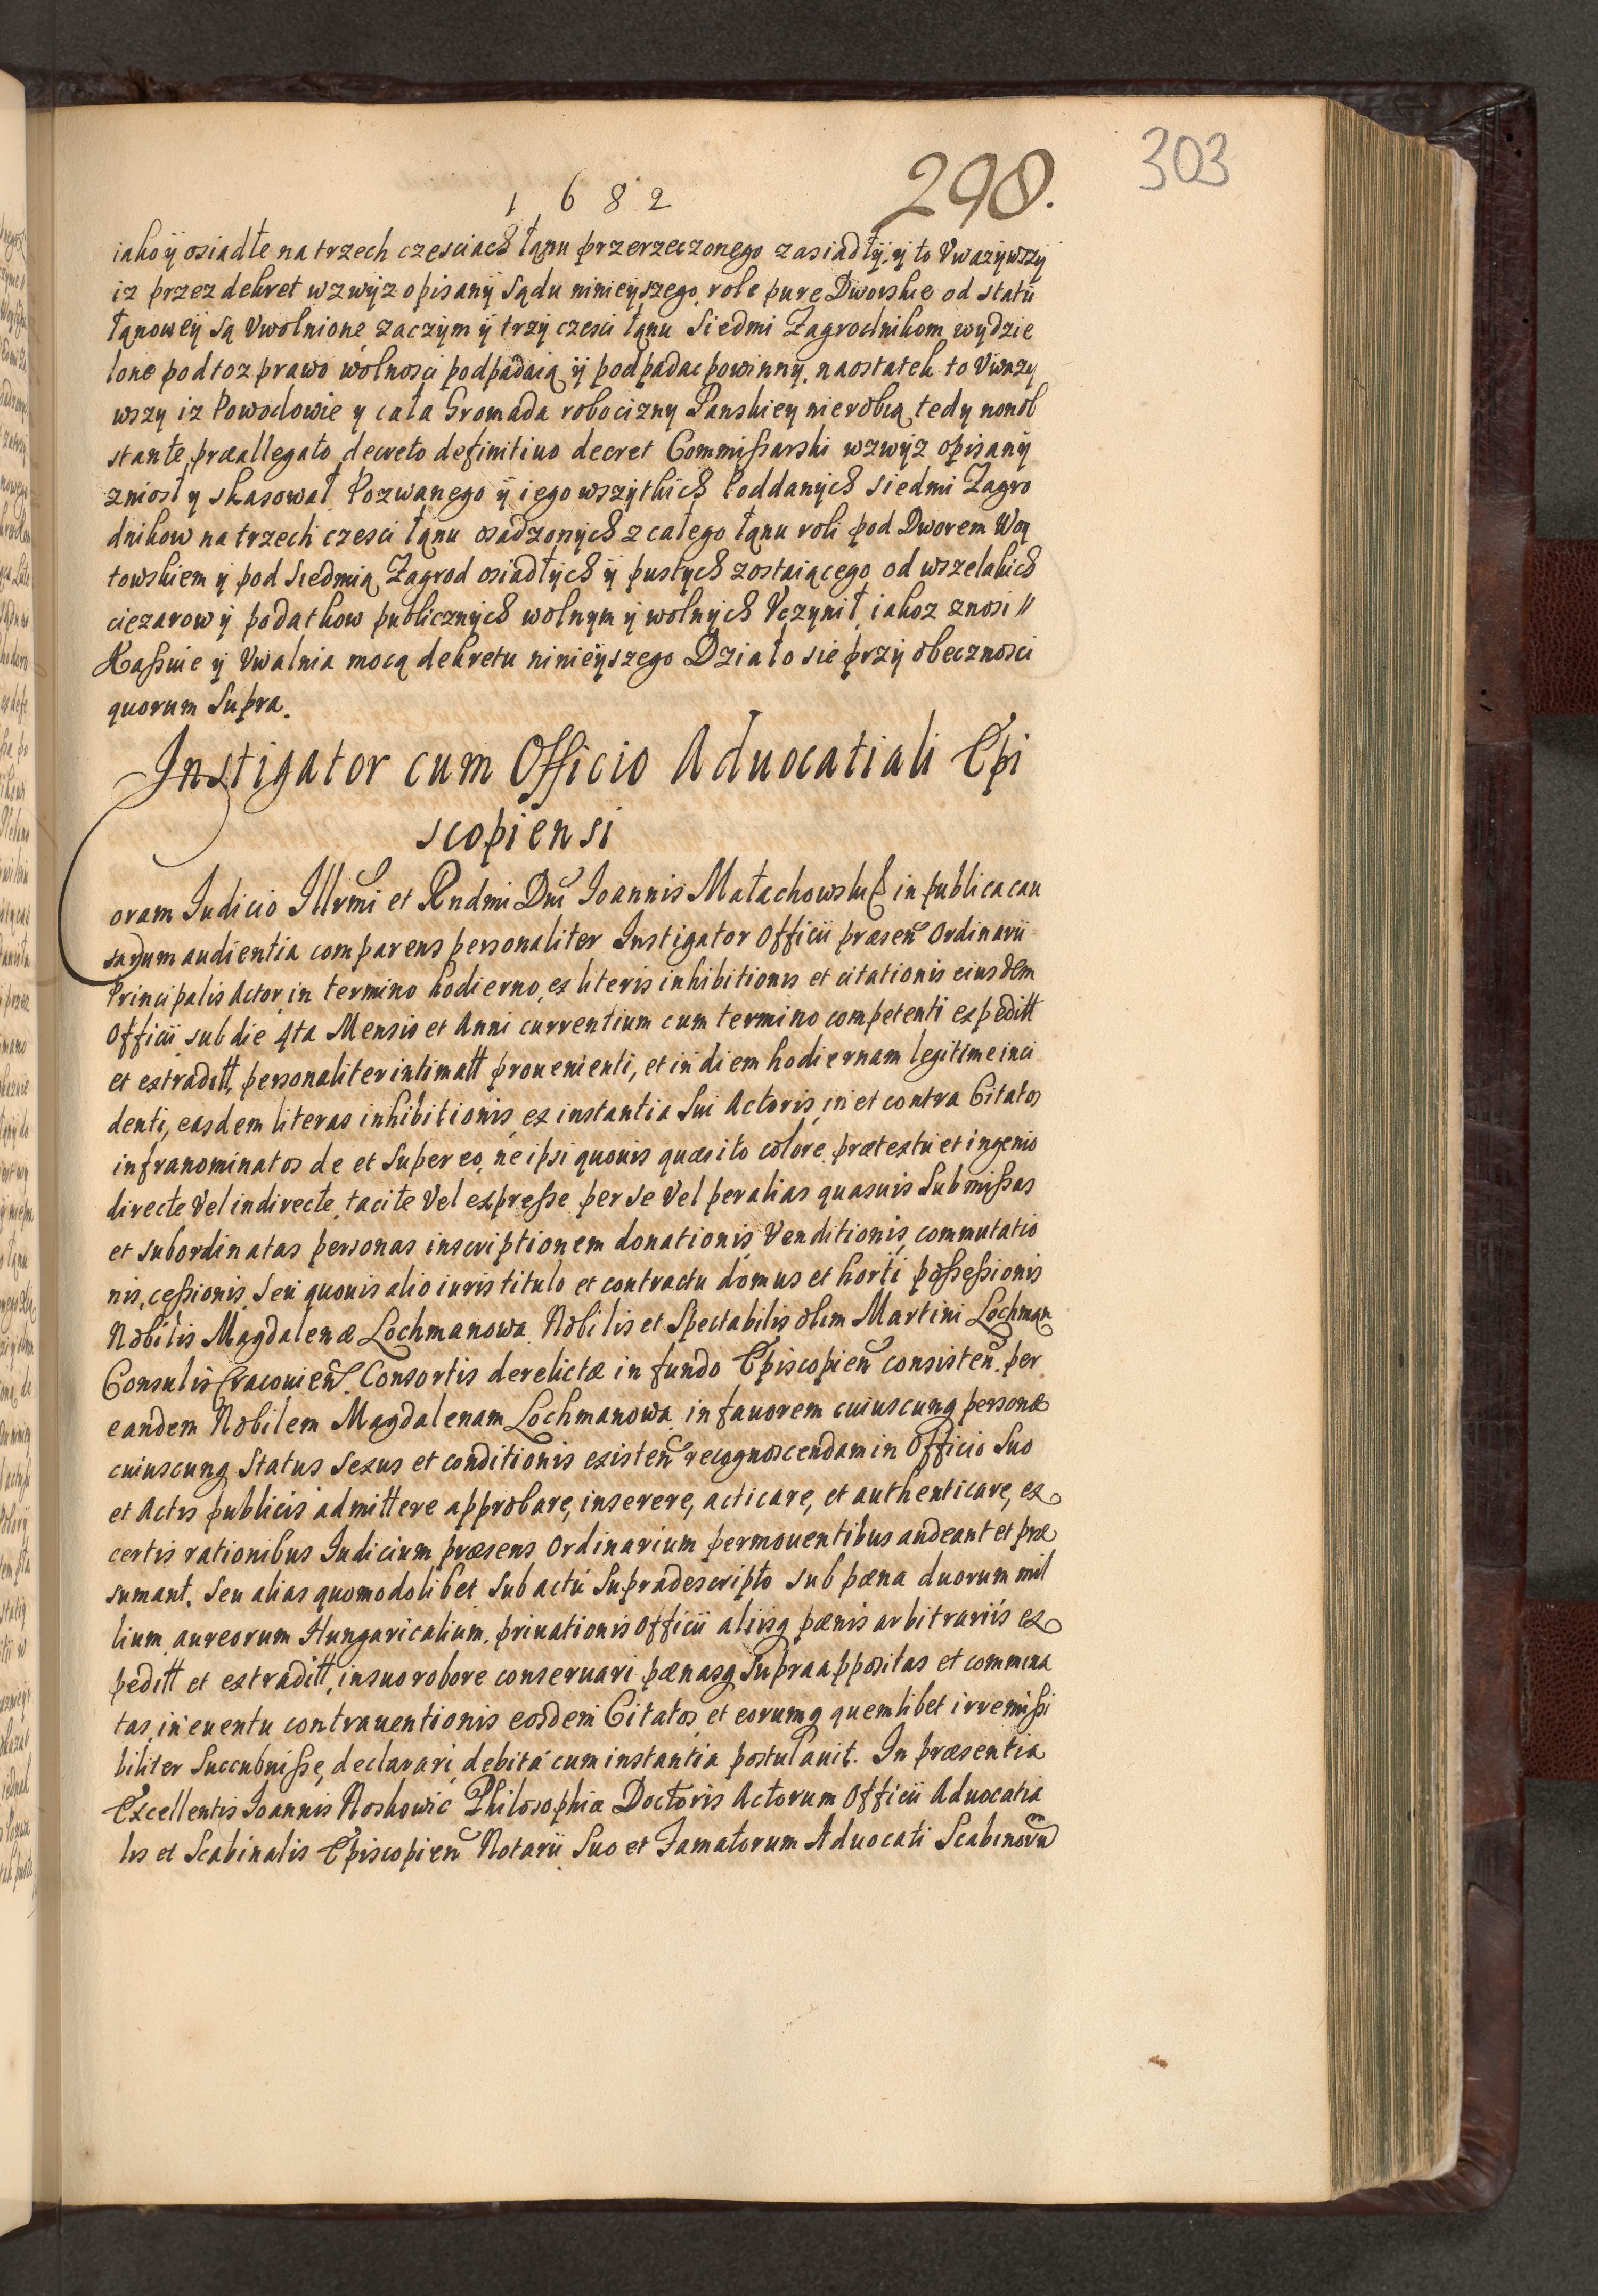 303
298.
1 6 8 2
iako ÿ osiadłe na trzech czesciach łąnu przerzeczonego zasiadłÿ, ÿ to Vwazÿwszÿ
iz przez dekret wzwÿz opisanÿ Sądu ninieÿszego, role pure Dworskie od statu
łąnoweÿ są Vwolnione, zaczÿm ÿ trzÿ czesci łąnu Siedmi Zagrodnikom wydzie
lone pod toz prawo wolnosci podpadaią ÿ podpadac powinnÿ, naostatek to Vwazy
wszy iz Powodowie y cała Gromada robocizny Panskiey nierobią tedy nonob
stante præallegato decreto definitiuo decret Commißarski wzwÿz opisanÿ
zniosł y skasował Pozwanego ÿ iego wszÿtkich Poddanÿch siedmi Zagro
dnikow na trzech czesci łąnu osadzonÿch z całego łąnu roli pod Dworem Woy
towskiem ÿ pod Siedmią Zagrod osiadłÿch ÿ pustÿch zostaiącego od wszelakich
ciezarow ÿ podatkow publicznÿch wolnym ÿ wolnÿch Vczynił, iakoz znosi //
Kaßuie ÿ Vwalnia mocą dekretu ninieÿszego Działo sie przÿ obecznosci
quorum Supra.
Instigator cum Officio Aduocatiali Epi
scopiensi
Coram Iudicio Illrmi et Rndmi Dni Ioannis Małachowski in publica cau
sarum audientia comparens personaliter Instigator Officii præsen Ordinarii
Principalis Actor, in termino hodierno, ex literis inhibitionis et citationis eiusdem
Officii sub die 4ta Mensis et Anni currentium cum termino competenti expeditt
et extraditt, personaliter intimatt prouenienti, et in diem hodiernam legitime inci
denti, easdem literas inhibitionis, ex instantia Sui Actoris, in et contra Citatos
infranominatos de et Super eo, ne ipsi quouis quæsito colore prætextu et ingenio
directe Vel indirecte, tacite Vel expreße per se Vel per alias quasuis Submißas
et subordinatas personas inscriptionem donationis Venditionis, commutatio
nis, ceßionis, Seu quouis alio iuris titulo et contractu domus et horti poßeßionis
Nobilis Magdalenæ Lochmanowa Nobilis et Spectabilis olim Martini Lochman
Consulis Cracouien. Consortis derelictæ in fundo Episcopien consisten. per
eandem Nobilem Magdalenam Lochmanowa in fauorem cuiuscunq personæ
cuiuscunq Status Sexus et conditionis existen recognoscendam in Officio Suo
et Actis publicis admittere approbare, inserere, acticare, et authenticare, ex
certis rationibus Iudicium præsens Ordinarium permouentibus audeant et præ
sumant, Seu alias quomodolibet Sub actu Supradescripto sub pœna duorum mil
lium aureorum Hungaricalium, priuationis Officii aliisq pœnis arbitrariis ex
peditt et extraditt, in suo robore conseruari pœnasq Supra appositas et commina
tas, in euentu contrauentionis eosdem Citatos et eorumq quemlibet irremißi
biliter Succubuiße, declarari debita cum instantia postulauit. In præsentia
Excellentis Ioannis Noskowic Philosophiæ Doctoris Actorum Officii Aduocatia
lis et Scabinalis Episcopien Notarii Suo et Famatorum Aduocati Scabinorum